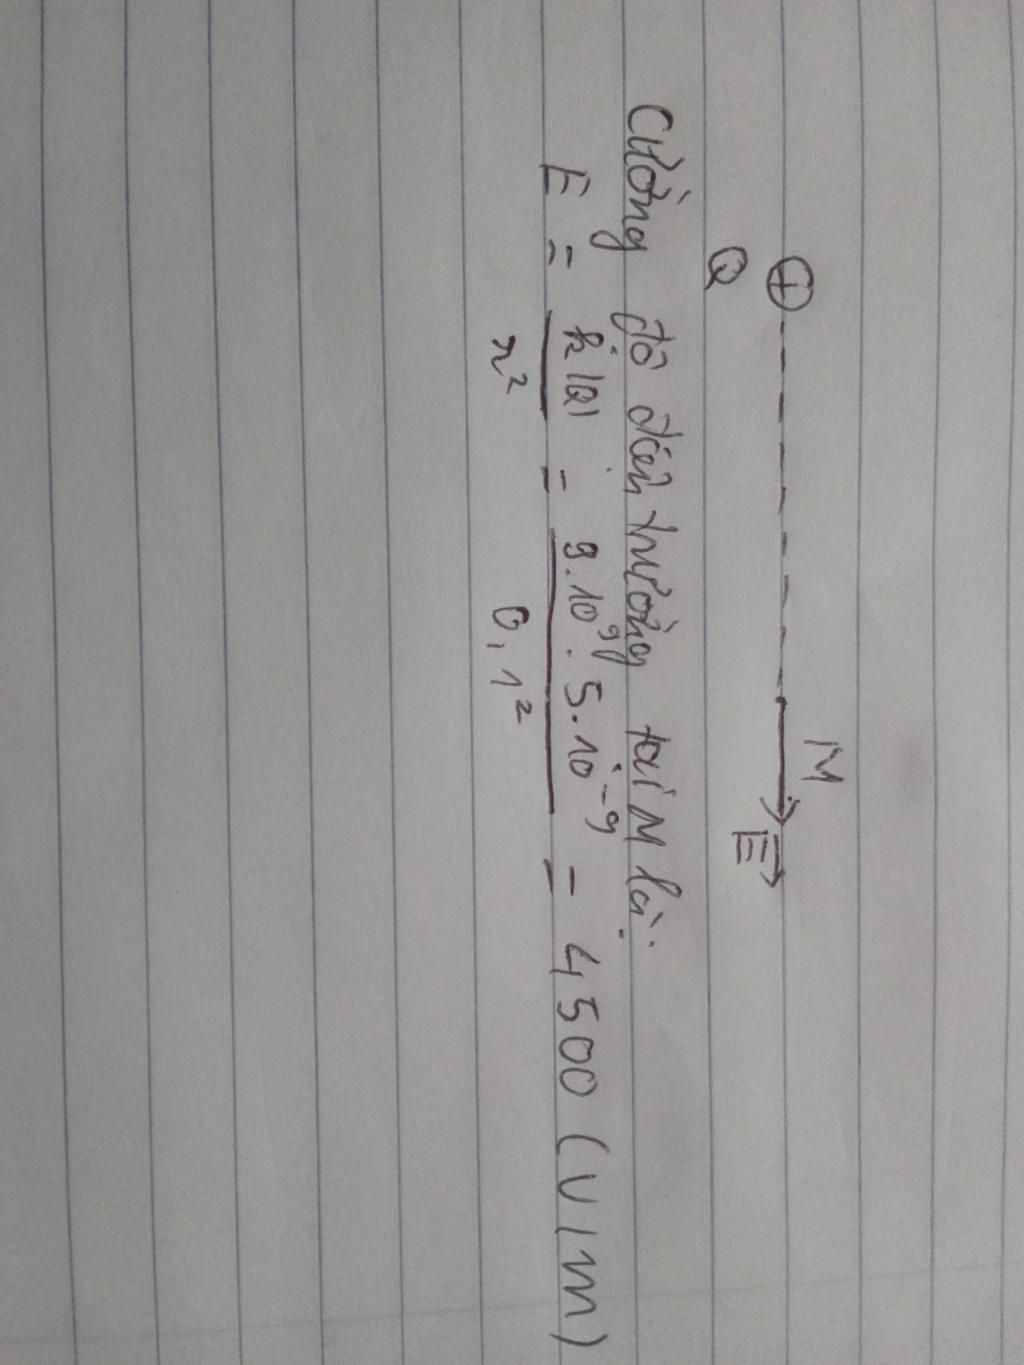 M
⊕
Q
E⃗
Cường độ điện trường tại M là:
E = k|Q| / r² = 9.10⁹.5.10⁻⁹ / 0,1² = 4500 (V/m)